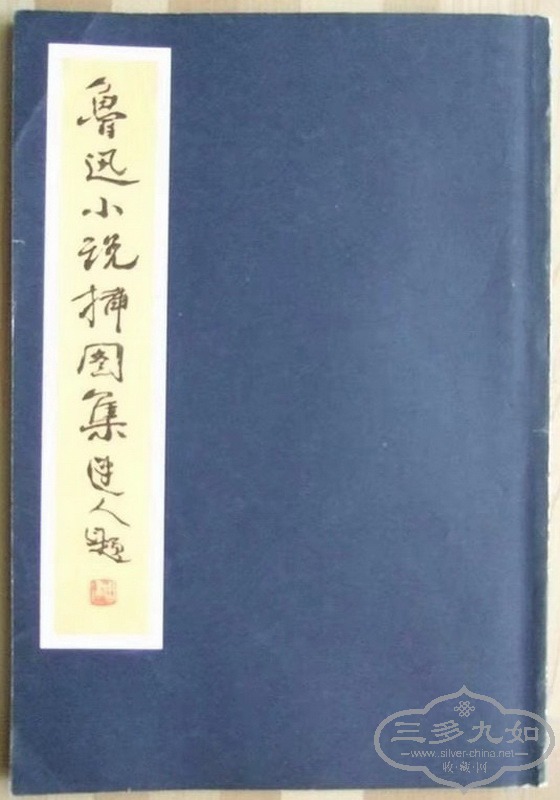 鲁迅小说插图集 建人题
三多九如
www.silver-china.net
收·藏·网